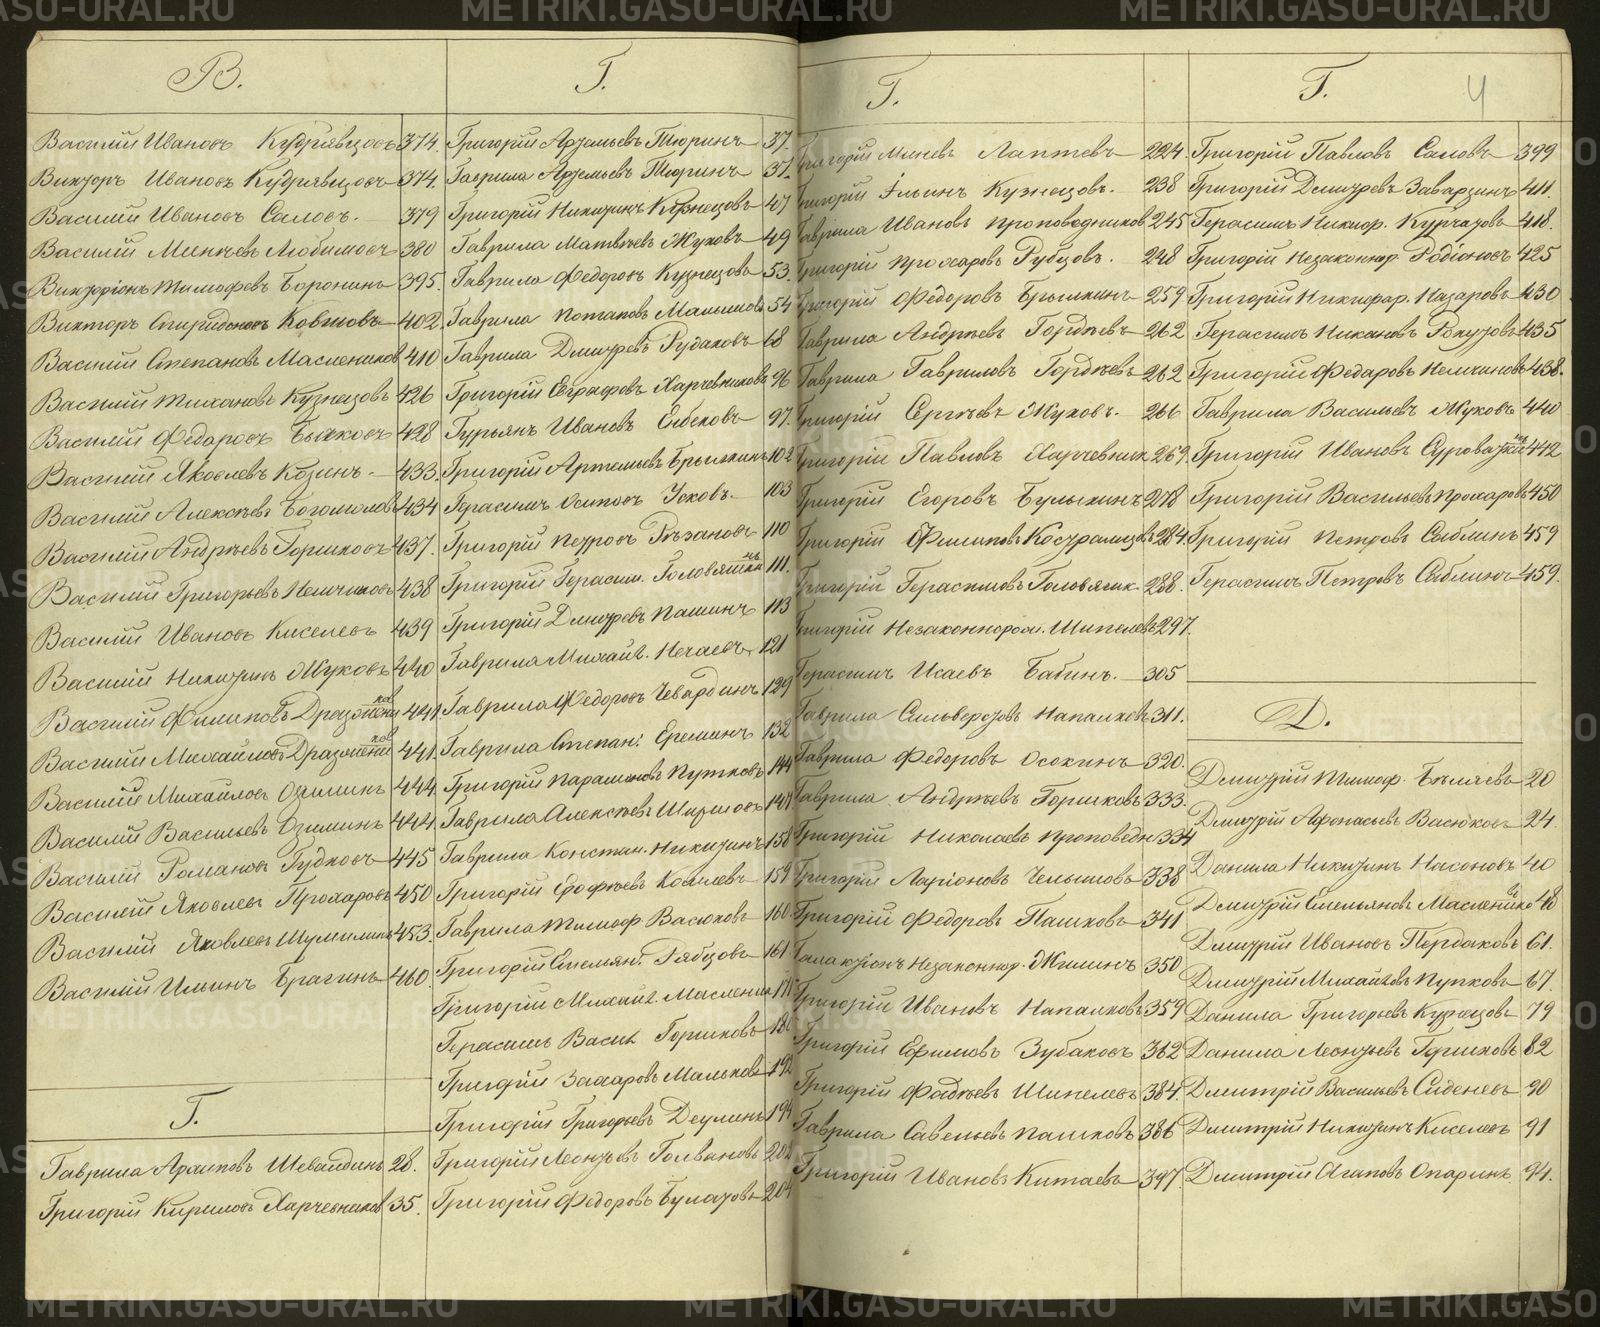 В.
Василій Ивановъ Кудрявцовъ 374.
Викторъ Ивановъ Кудрявцовъ 374.
Василій Ивановъ Саловъ. 379
Василій Минѣевъ Любимовъ 380
Викторіонъ Тимофеевъ Боронинъ 395.
Викторъ Спиридоновъ Ковшовъ 402.
Василій Степановъ Маслениковъ 410
Василій Тихановъ Кузнецовъ 426
Василій Федоровъ Быковъ 428
Василій Яковлевъ Козинъ 433.
Василій Алексѣевъ Богомоловъ 434
Василій Андрѣевъ Горшковъ 437.
Василій Григорьевъ Немчиновъ 438
Василій Ивановъ Киселевъ 439
Василій Никитинъ Жуковъ 440
Василій Филиповъ 441
Василій Михайловъ 441.
Василій Михайловъ Озиминъ 444.
Василій Васильевъ Озиминъ 444.
Василій Романовъ Гудковъ 445
Василій Яковлевъ Прохаровъ 450
Василій Яковлевъ Шумилинъ 453.
Василій Ильинъ Брагинъ 460.
Г.
Гаврила Архиповъ Шевалдинъ 28.
Григорій Кириловъ Харчевниковъ 35.
Г.
Григорій Артемьевъ Тюринъ 37.
Гаврила Артемьевъ Тюринъ 37.
Григорій Никитинъ Кузнецовъ 47
Гаврила Матвѣевъ Жуковъ 49
Гаврила Федоровъ Кузнецовъ 53.
Гаврила Потаповъ Малышовъ 54
Гаврила Дмитревъ Рудаковъ 68
Григорій Евграфовъ Харчевниковъ 96
Гурьянъ Ивановъ 97.
Григорій Артемьевъ Брылкинъ 102
Герасимъ Осиповъ Усковъ. 103
Григорій Петровъ Рѣзановъ 110
Григорій Герасим. Головяшкинъ 111.
Григорій Дмитревъ Пашинъ 113
Гаврила Михайл. Нечаевъ 121
Гаврила Федоровъ Чевардинъ 129
Гаврила Степан. Ереминъ 132
Григорій Парамоновъ Путковъ 144
Гаврила Алексѣевъ
Гаврила Констан. Никитинъ 158
Григорій Ерофѣевъ Кошлевъ 159
Гаврила Тимоф Васюковъ 160
Григорій Емельян. Рябцовъ 161
Григорій Михайл. Масленик
Герасимъ Васил Горшковъ
Григорій Захаровъ Мальковъ 192
Григорій Григорьевъ Деулинъ 194
Григорій Леонтьевъ Голвановъ 202
Григорій Федоровъ Булатовъ 204
Г.
Григорій Минѣевъ Лаптевъ 224.
Григорій Ильинъ Кузнецовъ. 238
Гаврила Ивановъ Проповедниковъ 245
Григорій Прохаровъ Рубцовъ. 248
Григорій Федоровъ Брылкинъ 259.
Гаврила Андрѣевъ Гордѣевъ 262
Гаврила Гавриловъ Гордѣевъ 262
Григорій Сергѣевъ Жуковъ. 266
Григорій Павловъ Харчевник 269.
Григорій Егоровъ Булыкинъ 278
Григорій Филиповъ Костромцовъ 284
Григорій Герасимовъ Головяшк. 288.
Григорій Незаконнорож. Шипелевъ 297.
Герасимъ Исаевъ Бабинъ. 305
Гаврила Сильверстовъ Напалковъ 311.
Гаврила Федоровъ Осокинъ 320.
Гаврила Андрѣевъ Горшковъ 333.
Григорій Николаевъ Проповедн 334
Григорій Ларіоновъ Челышовъ 338
Григорій Федоровъ Пашковъ 341
Галактіонъ Незаконнор. Жилинъ 350
Григорій Ивановъ Напалковъ 359
Григорій Ефимовъ Зубаковъ 362
Григорій Фадѣевъ Шипелевъ 384.
Гаврила Савельевъ Пашковъ 386
Григорій Ивановъ Китаевъ 397.
Г.
4
Григорій Павловъ Саловъ 399
Григорій Дмитревъ Заварзинъ 411.
Герасимъ Никифор. Кургузовъ 418.
Григорій Незаконнор. Родіоновъ 425
Григорій Никифар. Назаровъ 430
Герасимъ Никановъ 435
Григорій Федаровъ Немчиновъ 438.
Гаврила Васильевъ Жуковъ 440
Григорій Ивановъ 442
Григорій Васильевъ Прохаровъ 450
Григорій Петровъ Саблинъ 459
Герасимъ Петровъ Саблинъ 459.
Д.
Дмитрій Тимоф. Бѣляевъ 20
Дмитрій Афонасьевъ Васюковъ 24
Данила Никитинъ Насоновъ 40
Дмитрій Емельяновъ Маслениковъ 48
Дмитрій Ивановъ Пердаковъ 61.
Дмитрій Михайловъ Пупковъ 67.
Данила Григорьевъ Кузнецовъ 79
Данила Леонтьевъ Горшковъ 82
Дмитрій Васильевъ Сиденевъ 90
Дмитрій Никитинъ Киселевъ 91
Дмитрій Агаповъ Опаринъ 94.
METRIKI.GASO-URAL.RU